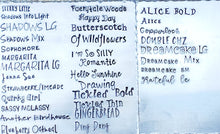 Shadows Infolight
SHADOWS LG
Shadows Mix
SOPHOMORE
MARGARITA
MARGARITA LG
Jenna Sue
Strawberry/limeade
Quirky Girl
SASSY MOLASSY
Another Birdhouse
Blueberry Oatmeal
Fairytale Woods
Happy Day
Butterscotch
Of Wildflowers
I'm So Silly
Romantic
Hello Sunshine
Drawing
Tickled Bold
Tickled Thin
GINGERBREAD
Ding Dang
ALICE BOLD
Alice
Copperlock
DOUBLE CHZ
DREAMCAKE LG
DREAMCAKE Mix
DREAMCAKE SM
Grateful